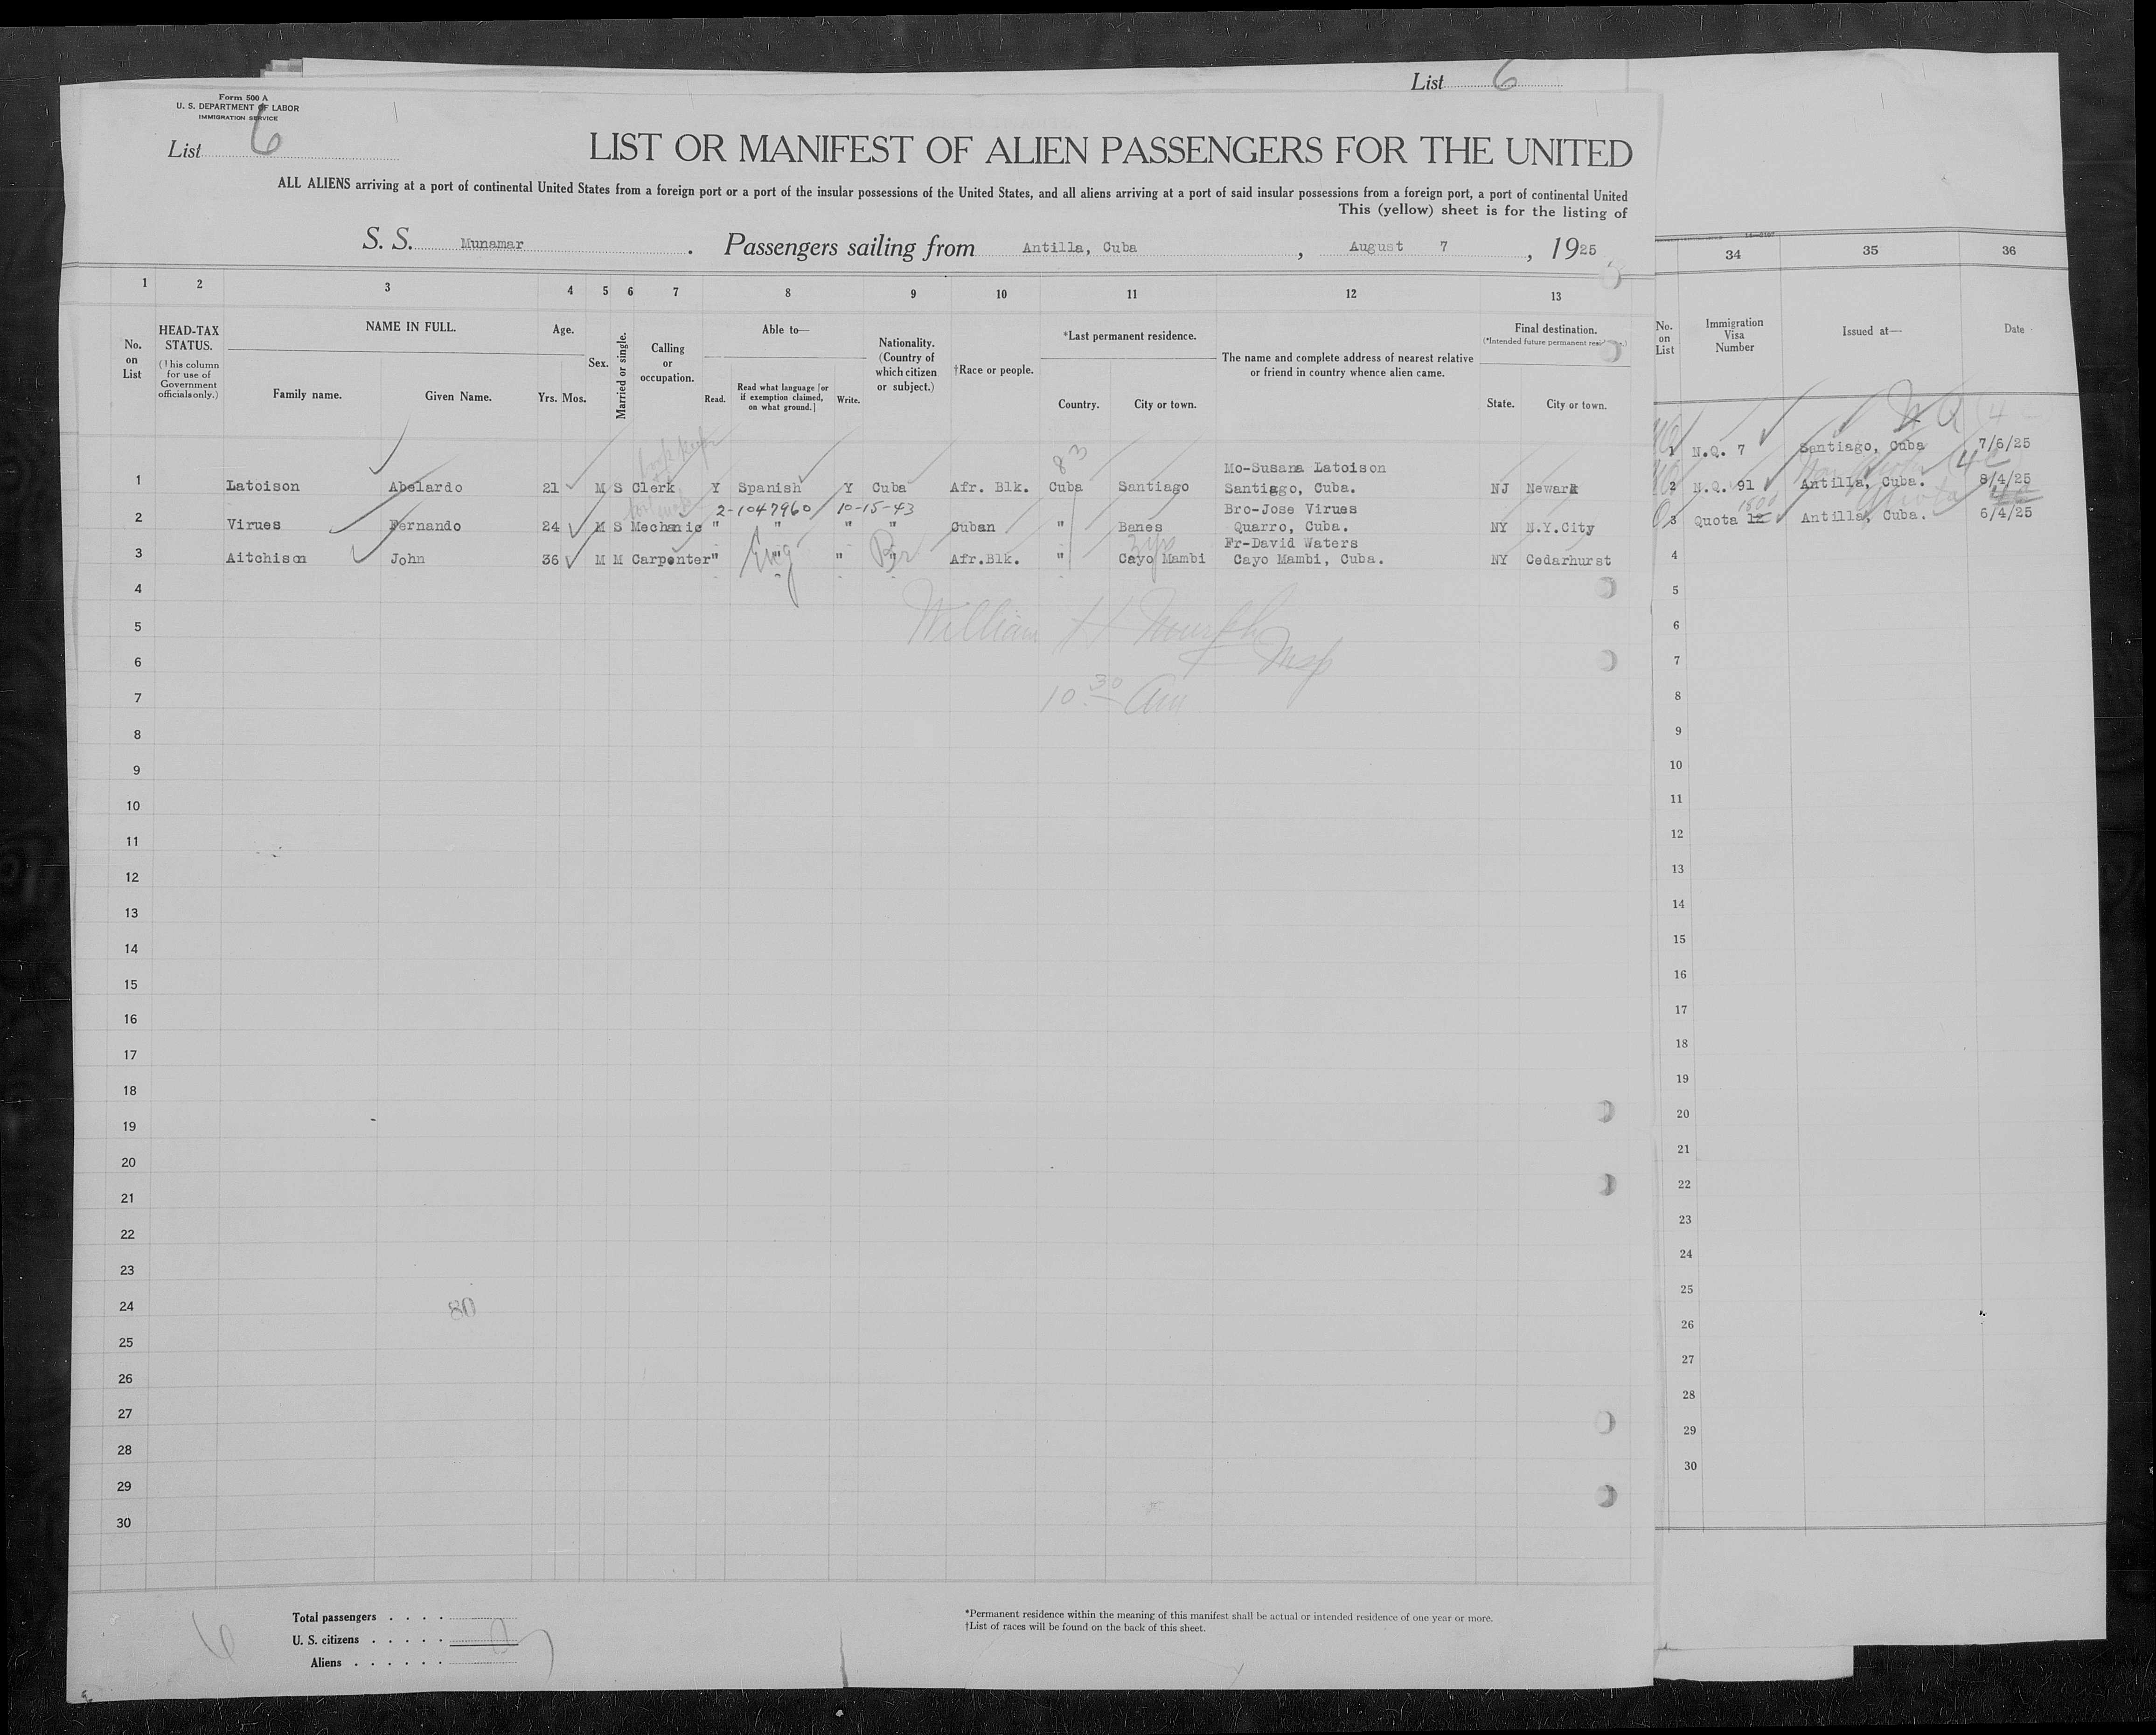 List 6
Form 500 A
U. S. DEPARTMENT OF LABOR
IMMIGRATION SERVICE
List 6
LIST OR MANIFEST OF ALIEN PASSENGERS FOR THE UNITED
ALL ALIENS arriving at a port of continental United States from a foreign port or a port of the insular possessions of the United States, and all aliens arriving at a port of said insular possessions from a foreign port, a port of continental United
This (yellow) sheet is for the listing of
S. S. Munamar. Passengers sailing from Antilla, Cuba, August 7, 1925
1 2 3 4 5 6 7 8 9 10 11 12 13
34 35 36
No. on List
HEAD-TAX STATUS.
(This column for use of Government officials only.)
NAME IN FULL.
Family name. Given Name.
Age.
Yrs. Mos.
Sex.
Married or single.
Calling or occupation.
Able to—
Read. Read what language [or if exemption claimed, on what ground.] Write.
Nationality. (Country of which citizen or subject.)
†Race or people.
*Last permanent residence.
Country. City or town.
The name and complete address of nearest relative or friend in country whence alien came.
Final destination.
State. City or town.
No. on List
Immigration Visa Number
Issued at—
Date
83
Mo-Susana Latoison
1 Latoison Abelardo 21 M S Clerk Y Spanish Y Cuba Afr. Blk. Cuba Santiago Santiago, Cuba. NJ Newark
2-1047960 10-15-43
Bro-Jose Virues
2 Virues Fernando 24 M S Mechanic " " " " Cuban " Banes Quarro, Cuba. NY N.Y.City
3 yrs
Fr-David Waters
3 Aitchison John 36 M M Carpenter " Eng " Br Afr.Blk. " Cayo Mambi Cayo Mambi, Cuba. NY Cedarhurst
N Q 4
1 N.Q. 7 Santiago, Cuba 7/6/25
4c
2 N.Q. 91 Antilla, Cuba. 8/4/25
3 Quota 12 Antilla, Cuba. 6/4/25
William H Murphy
Insp
10 30 Am
4
5
6
7
8
9
10
11
12
13
14
15
16
17
18
19
20
21
22
23
24
80
25
26
27
28
29
30
4
5
6
7
8
9
10
11
12
13
14
15
16
17
18
19
20
21
22
23
24
25
26
27
28
29
30
6
Total passengers
U. S. citizens
Aliens
*Permanent residence within the meaning of this manifest shall be actual or intended residence of one year or more.
†List of races will be found on the back of this sheet.